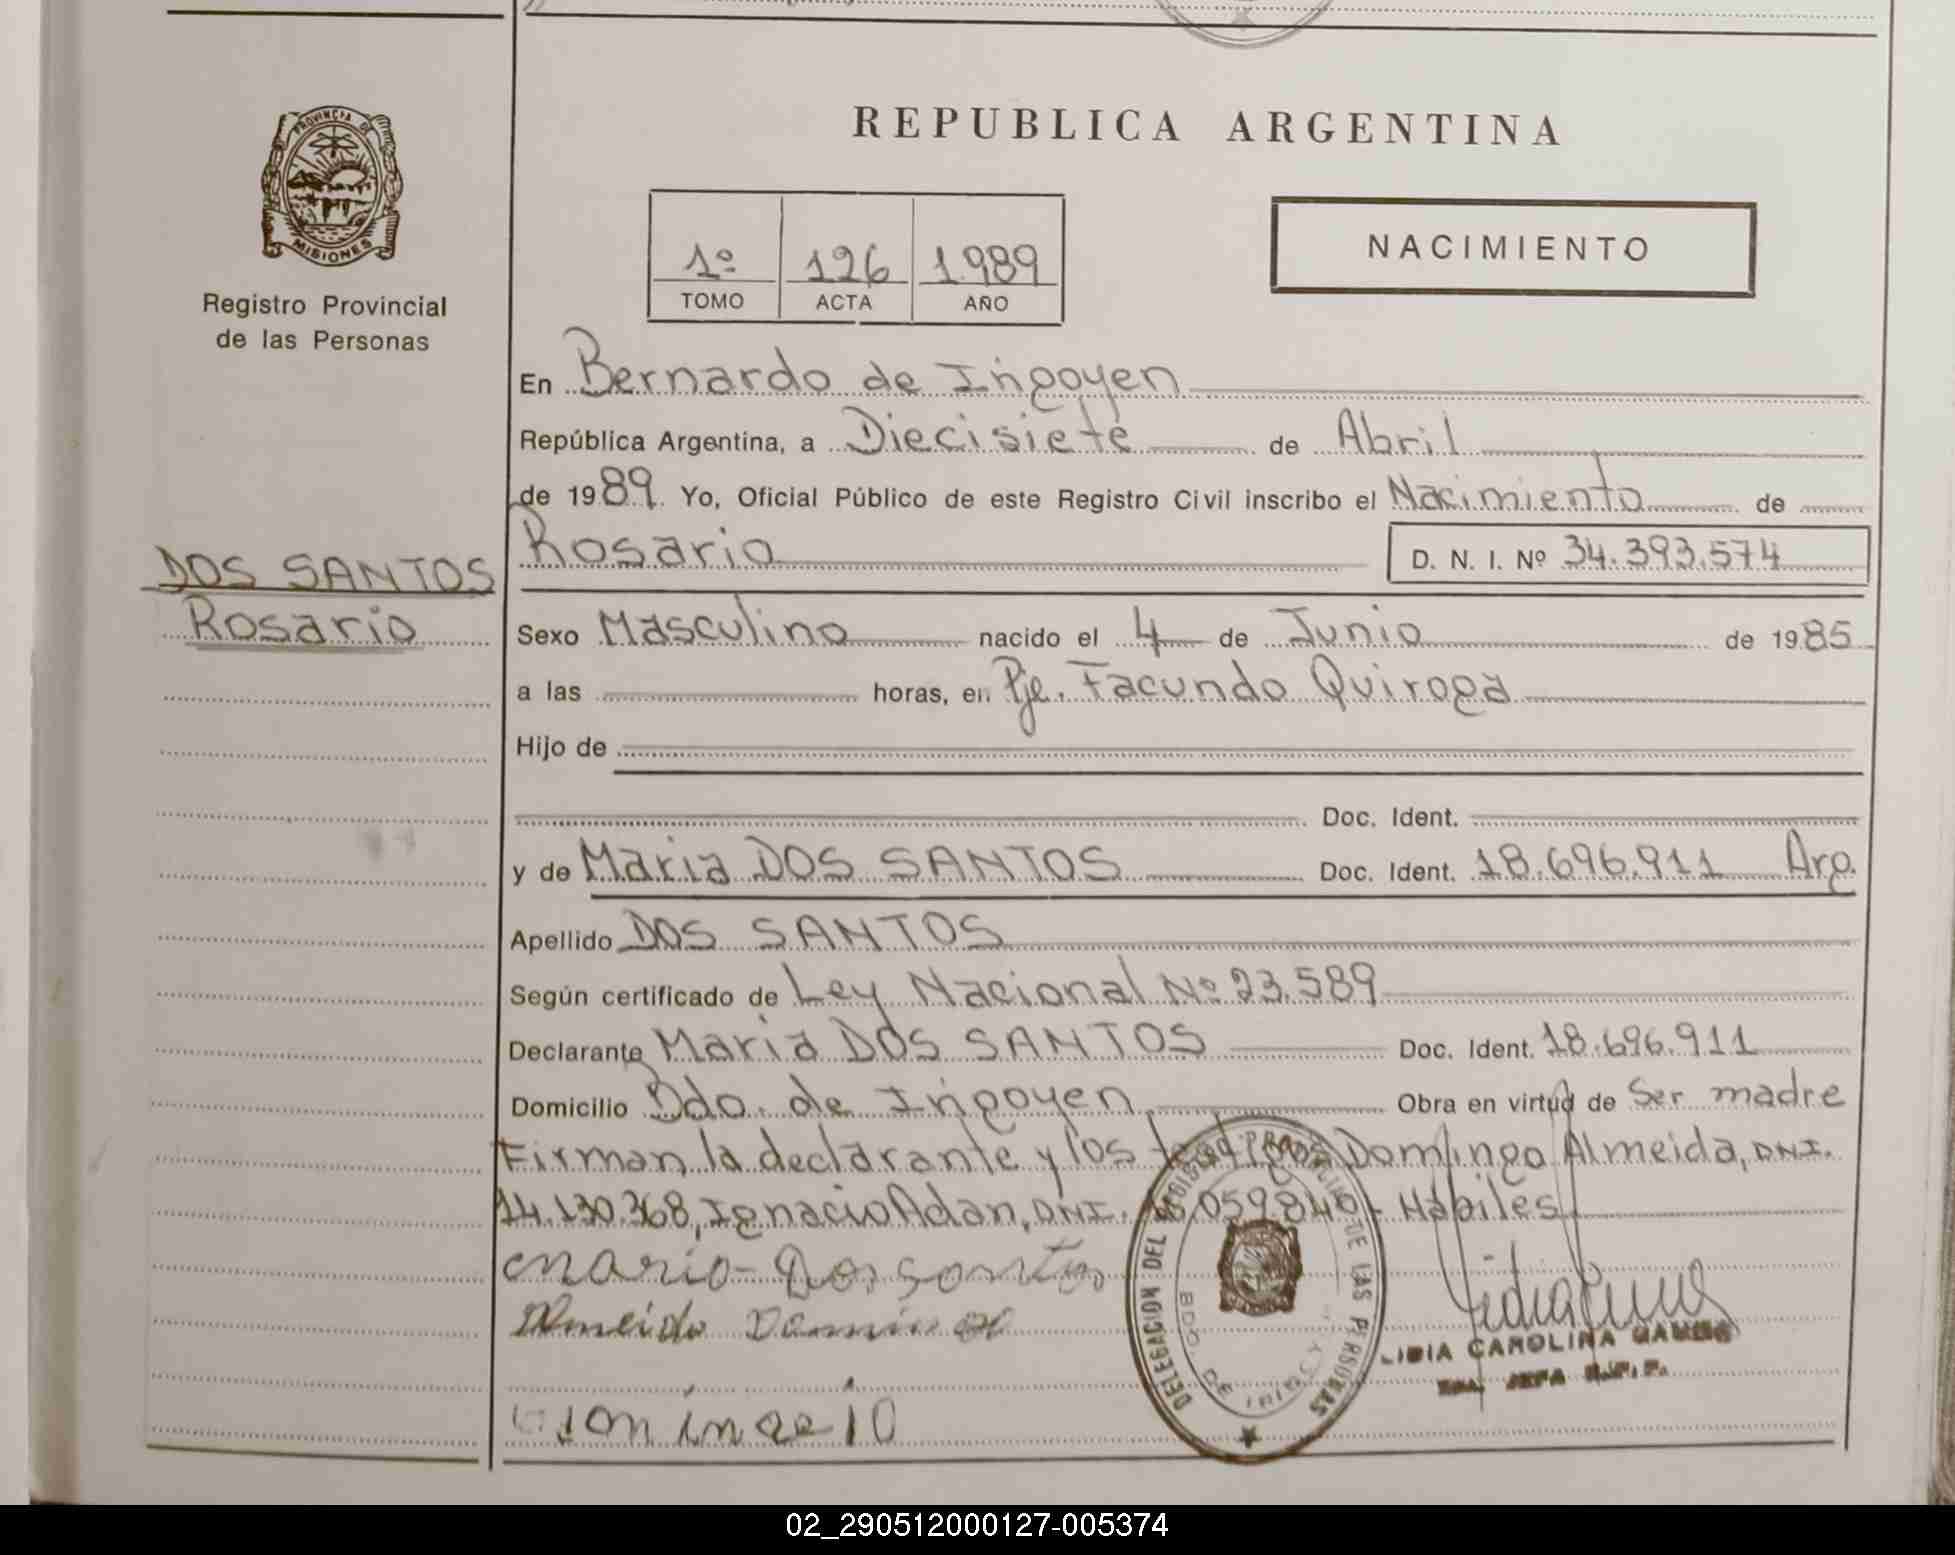 PROVINCIA DE
MISIONES
Registro Provincial
de las Personas
REPUBLICA ARGENTINA
1º 126 1989
TOMO ACTA AÑO
NACIMIENTO
En Bernardo de Irigoyen
República Argentina, a Diecisiete de Abril
de 1989. Yo, Oficial Público de este Registro Civil inscribo el Nacimiento de
Rosario D. N. I. Nº 34.393.574
DOS SANTOS
Rosario
Sexo Masculino nacido el 4 de Junio de 1985
a las horas, en Pje. Facundo Quiroga
Hijo de
Doc. Ident.
y de Maria DOS SANTOS Doc. Ident. 18.696.911 Arg.
Apellido DOS SANTOS
Según certificado de Ley Nacional Nº 23.589
Declarante Maria DOS SANTOS Doc. Ident. 18.696.911
Domicilio Bdo. de Irigoyen Obra en virtud de Ser madre
Firman la declarante y los testigos Domingo Almeida, DNI.
14.130.368, Ignacio Adan, DNI. 059.840 - Hábiles
Almeida
DELEGACION DEL REGISTRO PROVINCIAL DE LAS PERSONAS
BDO. DE IRIGOYEN
LIDIA CAROLINA
JEFA
02_290512000127-005374